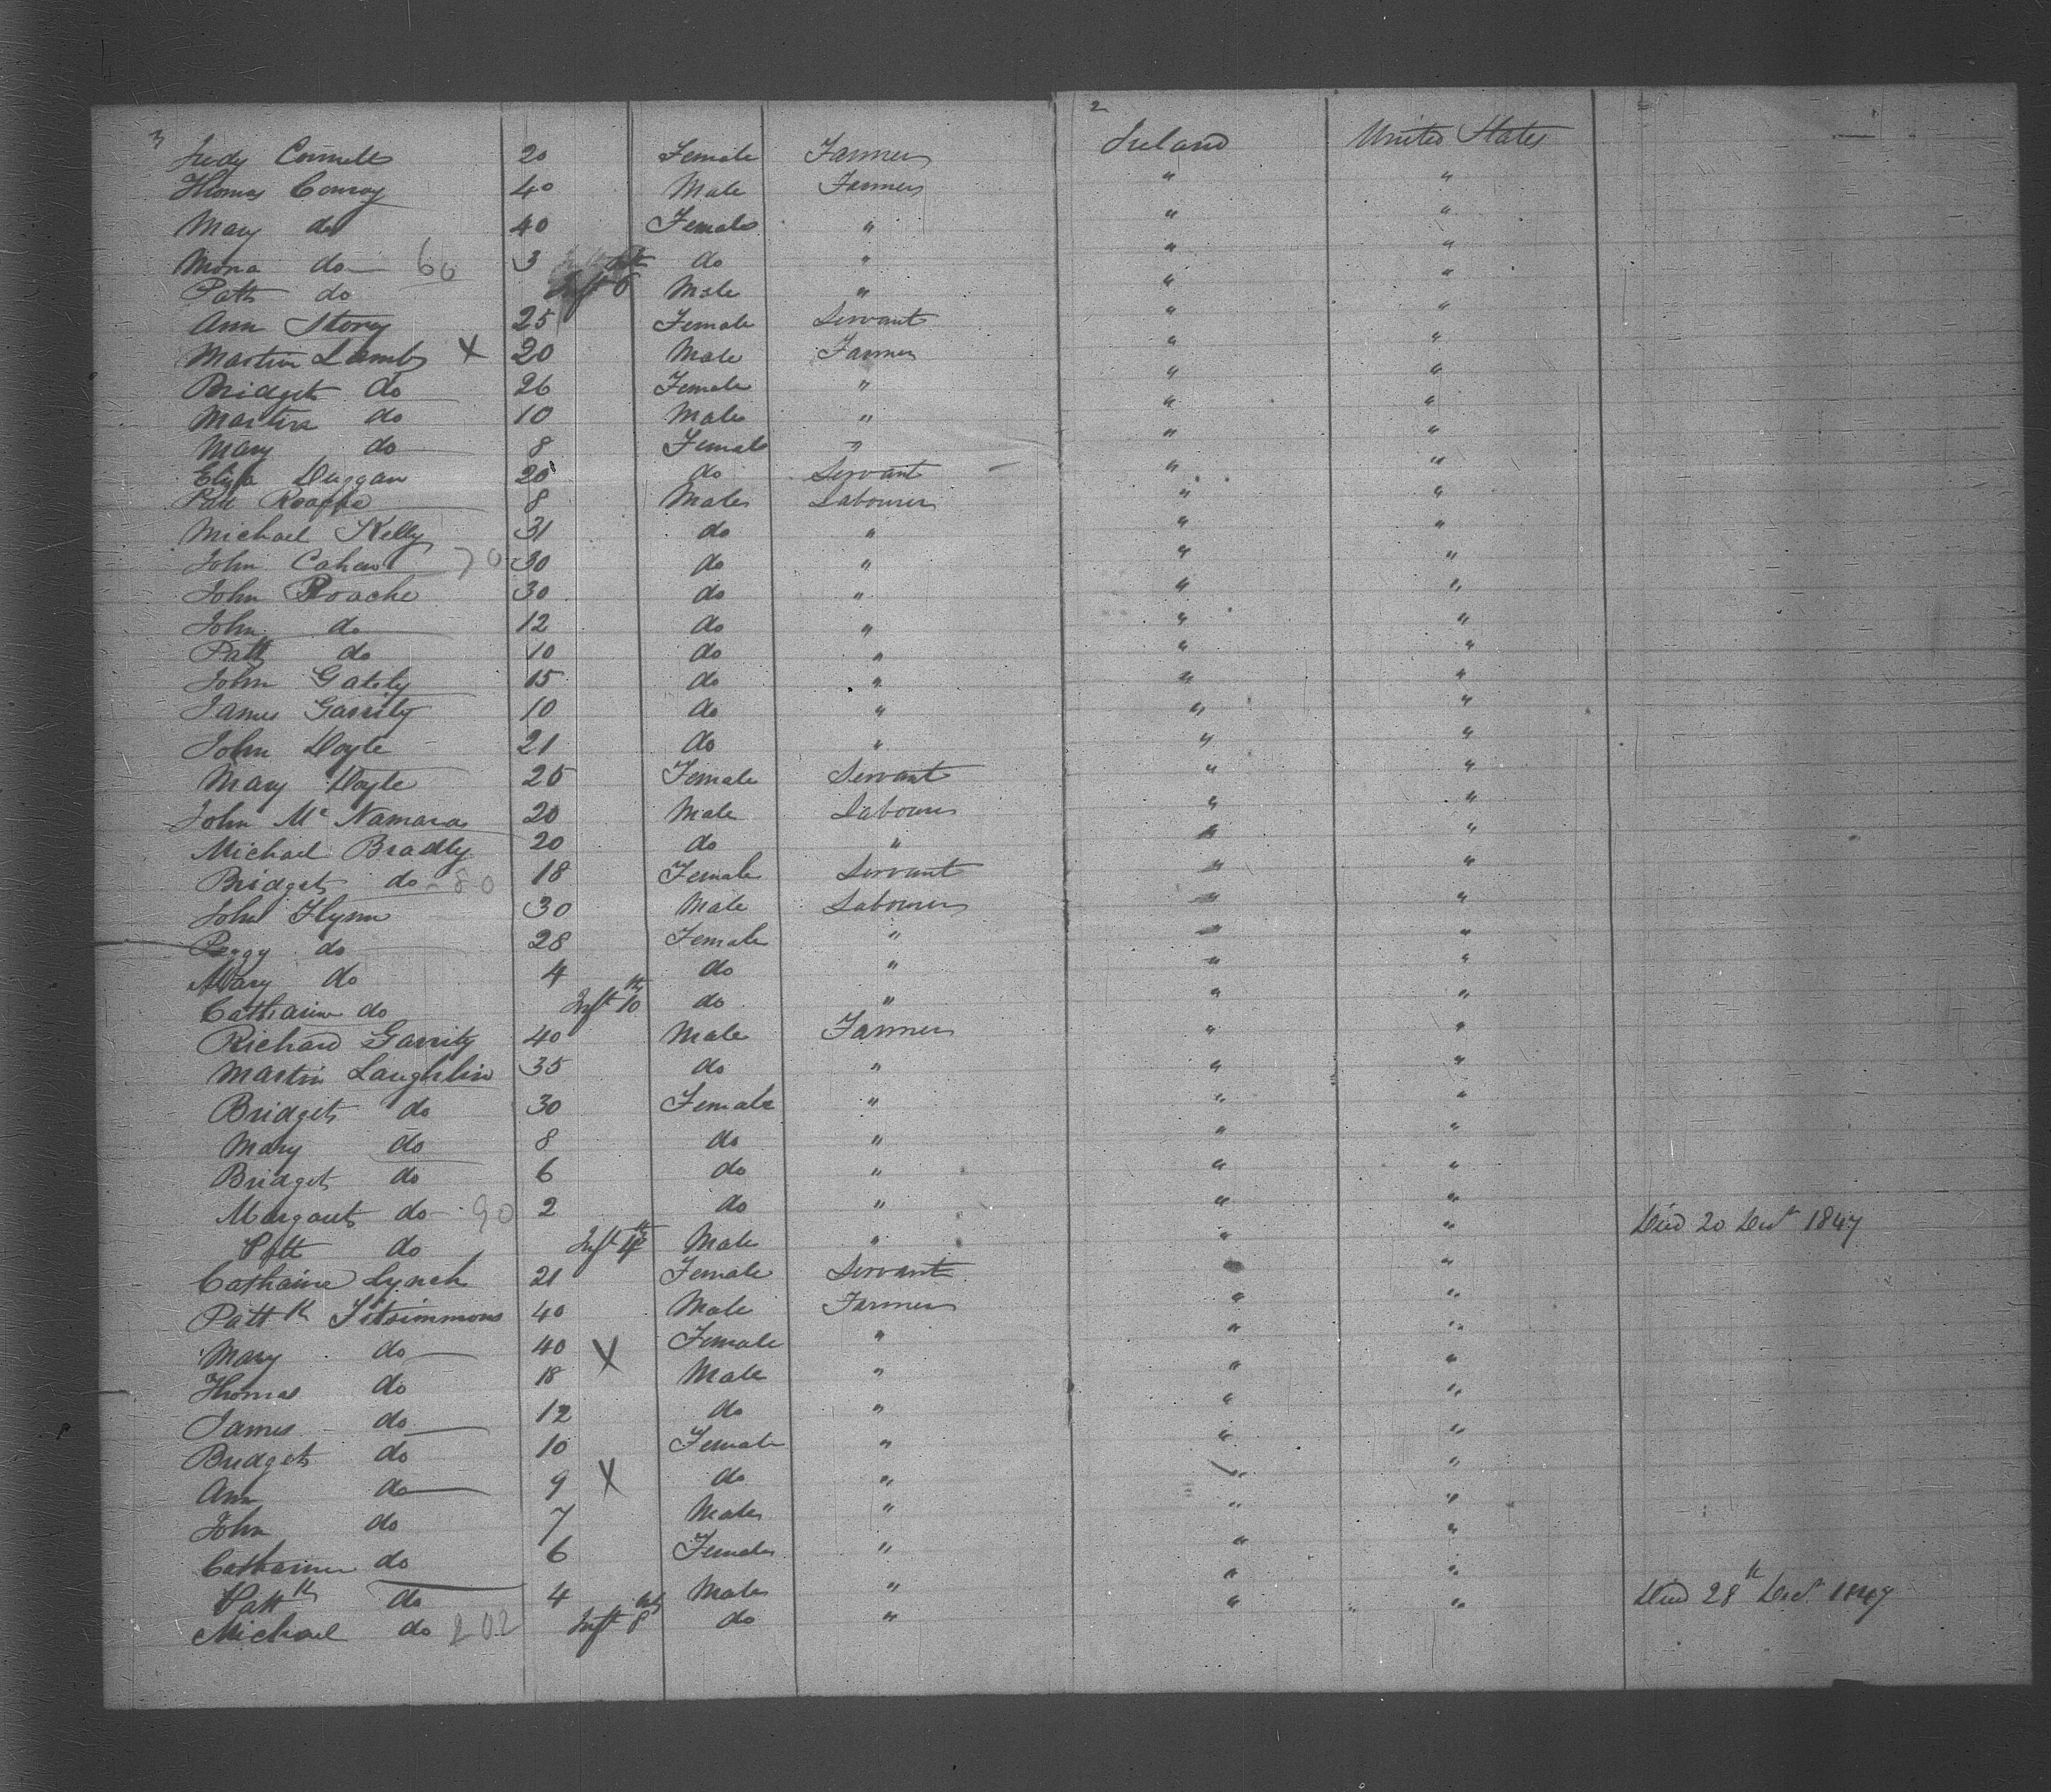 3 2
Judy Connell 20 Female Farmer Ireland United States
Thomas Conroy 40 Male Farmer " "
Mary do 40 Female " " "
Mona do 60 3 do " " "
Patt do Inft 6 Male " " "
Ann Story 25 Female Servant " "
Martin Lamb X 20 Male Farmer " "
Bridget do 26 Female " " "
Martin do 10 Male " " "
Mary do 8 Female " " "
Eliza Duggan 20 do Servant " "
Patt Roache 8 Male Labourer " "
Michael Kelly 31 do " " "
John Cahew 70 30 do " " "
John Roache 30 do " " "
John do 12 do " " "
Patt do 10 do " " "
John Gately 15 do " " "
James Garrity 10 do " " "
John Doyle 21 do " " "
Mary Doyle 25 Female Servant " "
John Mc Namara 20 Male Labourer " "
Michael Bradly 20 do " " "
Bridget do 80 18 Female Servant " "
John Flynn 30 Male Labourer " "
Peggy do 28 Female " " "
Mary do 4 do " " "
Catharine do Inft 10 do " " "
Richard Garrity 40 Male Farmer " "
Martin Laughlin 35 do " " "
Bridget do 30 Female " " "
Mary do 8 do " " "
Bridget do 6 do " " "
Margaret do 90 2 do " " "
Patt do Inft Male " " " Died 20 Decr 1847
Catharine Lynch 21 Female Servant " "
Pattk Fitsimmons 40 Male Farmer " "
Mary do 40 X Female " " "
Thomas do 18 Male " " "
James do 12 do " " "
Bridget do 10 Female " " "
Ann do 9 X do " " "
John do 7 Male " " "
Catharine do 6 Female " " "
Pattk do 4 Male " " "
Michael do 202 Inft 8 do " " " Died 28th Decr 1847